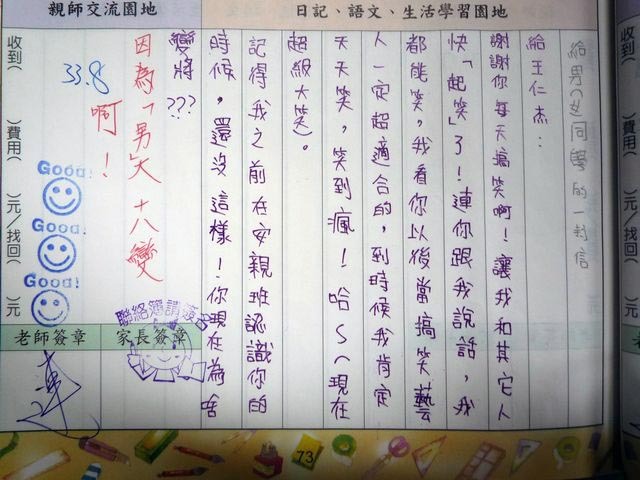 日記、語文、生活學習園地
給男(女)同學的一封信
給王仁杰：
謝謝你每天搞笑啊！讓我和其它人
快「起笑」了！連你跟我說話，我
都能笑，我看你以後當搞笑藝
人一定超適合的，到時候我肯定
天天笑，笑到瘋！哈～(現在
超級大笑)。
記得我之前在安親班認識你的
時候，還沒這樣！你現在為啥
變將???
親師交流園地
因為「男」大十八變
啊！
33.8
Good!
Good!
Good!
收到( )費用( )元/找回( )元
家長簽章
聯絡簿請簽名
老師簽章
73